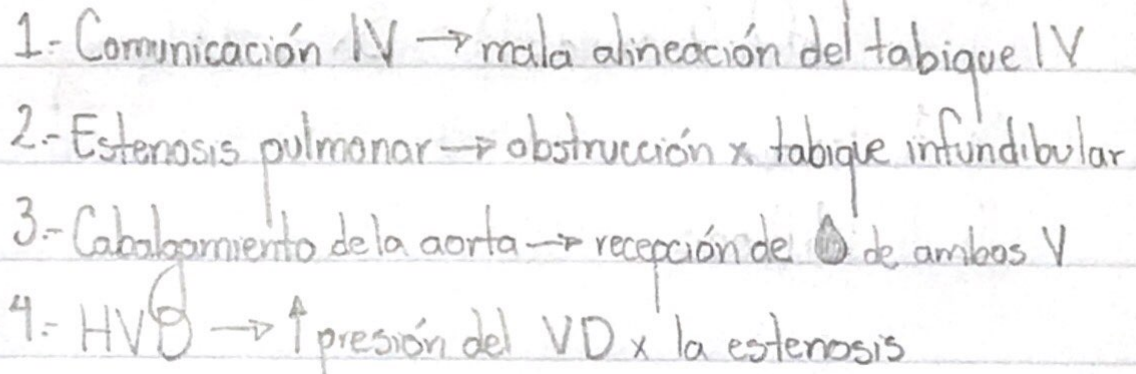 1.- Comunicación IV → mala alineación del tabique IV
2.- Estenosis pulmonar → obstrucción x tabique infundibular
3.- Cabalgamiento de la aorta → recepción de 🩸 de ambos V
4.- HVD → ↑ presión del VD x la estenosis